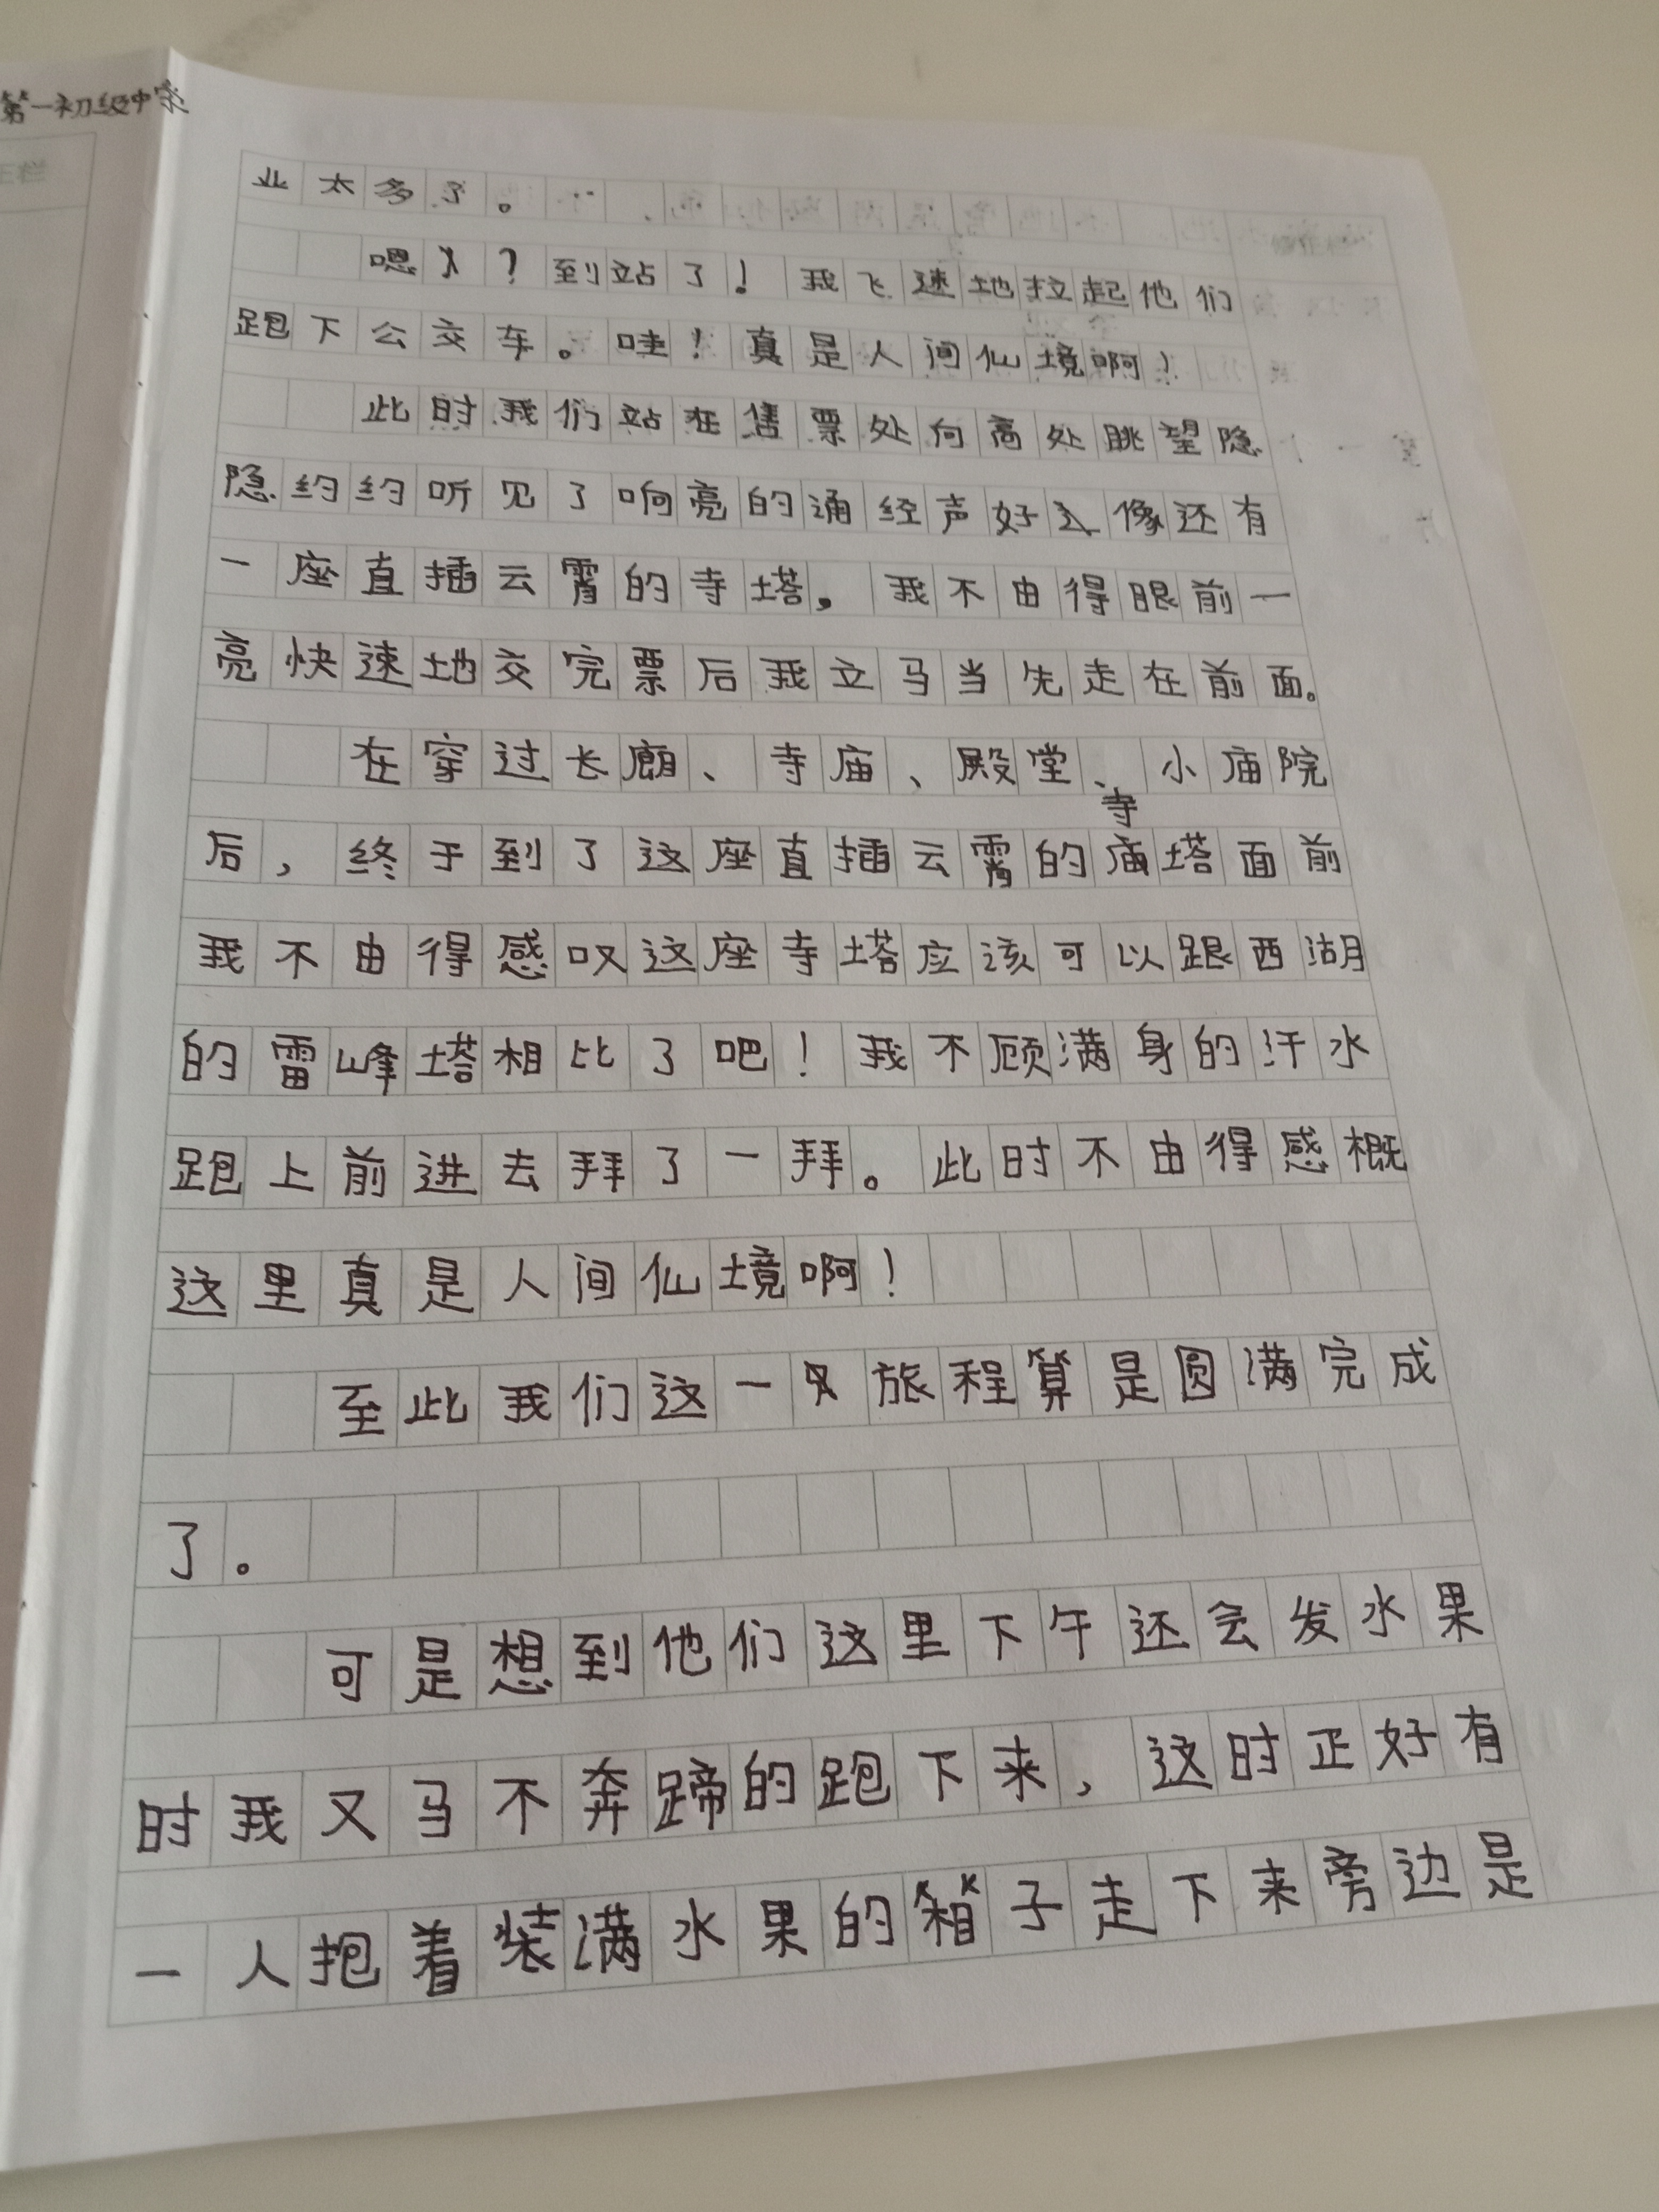 第一初级中学
业太多了。
嗯?到站了!我飞速地拉起他们
跑下公交车。哇!真是人间仙境啊!
此时我们站在售票处向高处眺望隐
隐约约听见了响亮的诵经声好像还有
一座直插云霄的寺塔。我不由得眼前一
亮快速地交完票后我立马当先走在前面。
在穿过长廊、寺庙、殿堂、小庙院
后,终于到了这座直插云霄的寺塔面前
我不由得感叹这座寺塔应该可以跟西湖
的雷峰塔相比了吧!我不顾满身的汗水
跑上前进去拜了一拜。此时不由得感概
这里真是人间仙境啊!
至此我们这一旅程算是圆满完成
了。
可是想到他们这里下午还会发水果
时我又马不奔蹄的跑下来,这时正好有
一人抱着装满水果的箱子走下来旁边是